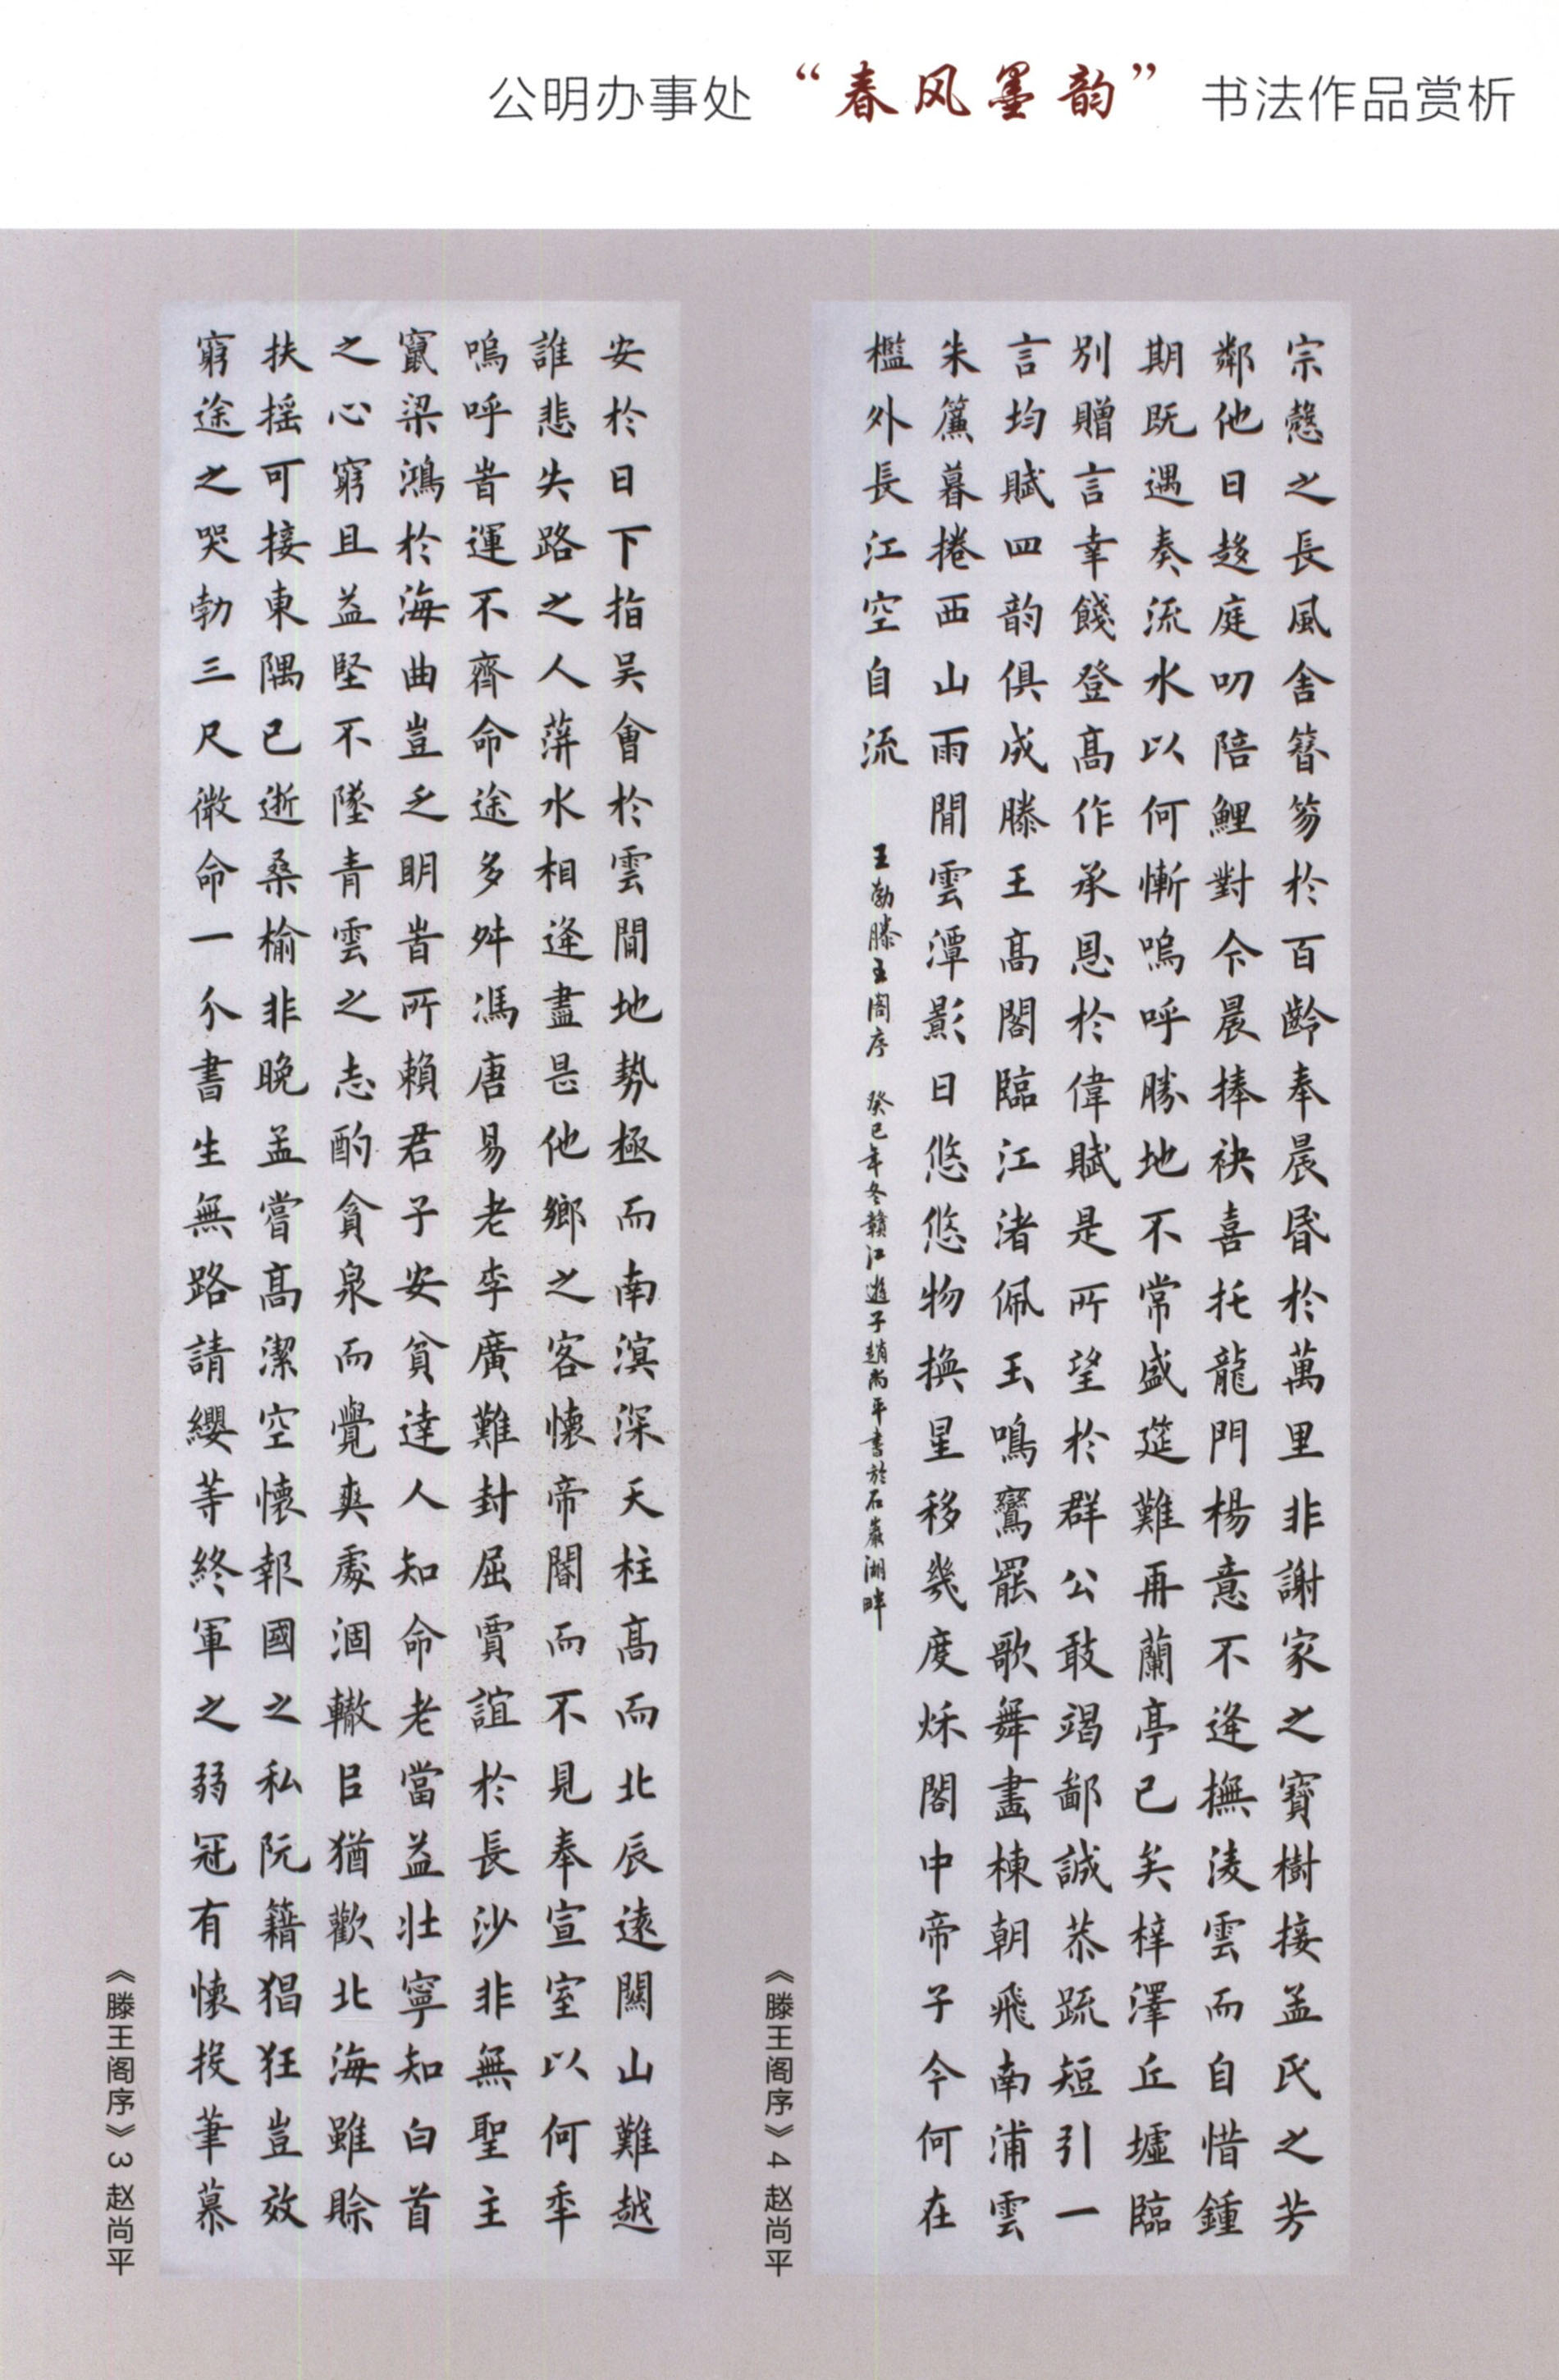 公明办事处“春风墨韵”书法作品赏析
安於日下指吴會於雲間地勢極而南溟深天柱高而北辰遠關山難越
誰悲失路之人蓱水相逢盡是他鄉之客懷帝閽而不見奉宣室以何年
嗚呼旹運不齊命途多舛馮唐易老李廣難封屈賈誼於長沙非無聖主
竄梁鴻於海曲豈乏明旹所賴君子安貧達人知命老當益壯寧知白首
之心窮且益堅不墜青雲之志酌貪泉而覺爽處涸轍㠯猶歡北海雖賒
扶摇可接東隅已逝桑榆非晚孟嘗高潔空懷報國之私阮籍猖狂豈效
窮途之哭勃三尺微命一介書生無路請纓等終軍之弱冠有懷投筆慕
《滕王阁序》3 赵尚平
宗慤之長風舍簪笏於百齡奉晨昏於萬里非謝家之寶樹接孟氏之芳
鄰他日趍庭叨陪鯉對今晨捧袂喜托龍門楊意不逢撫凌雲而自惜鍾
期既遇奏流水以何慚嗚呼勝地不常盛筵難再蘭亭已矣梓澤丘墟臨
別贈言幸餞登高作承恩於偉賦是所望於群公敢竭鄙誠恭疏短引一
言均賦四韵俱成滕王高閣臨江渚佩玉鳴鸞罷歌舞畫棟朝飛南浦雲
朱簾暮捲西山雨閒雲潭影日悠悠物換星移幾度秌閣中帝子今何在
檻外長江空自流
王勃滕王閣序 癸巳年冬贛江遊子趙尚平書於石巖湖畔
《滕王阁序》4 赵尚平